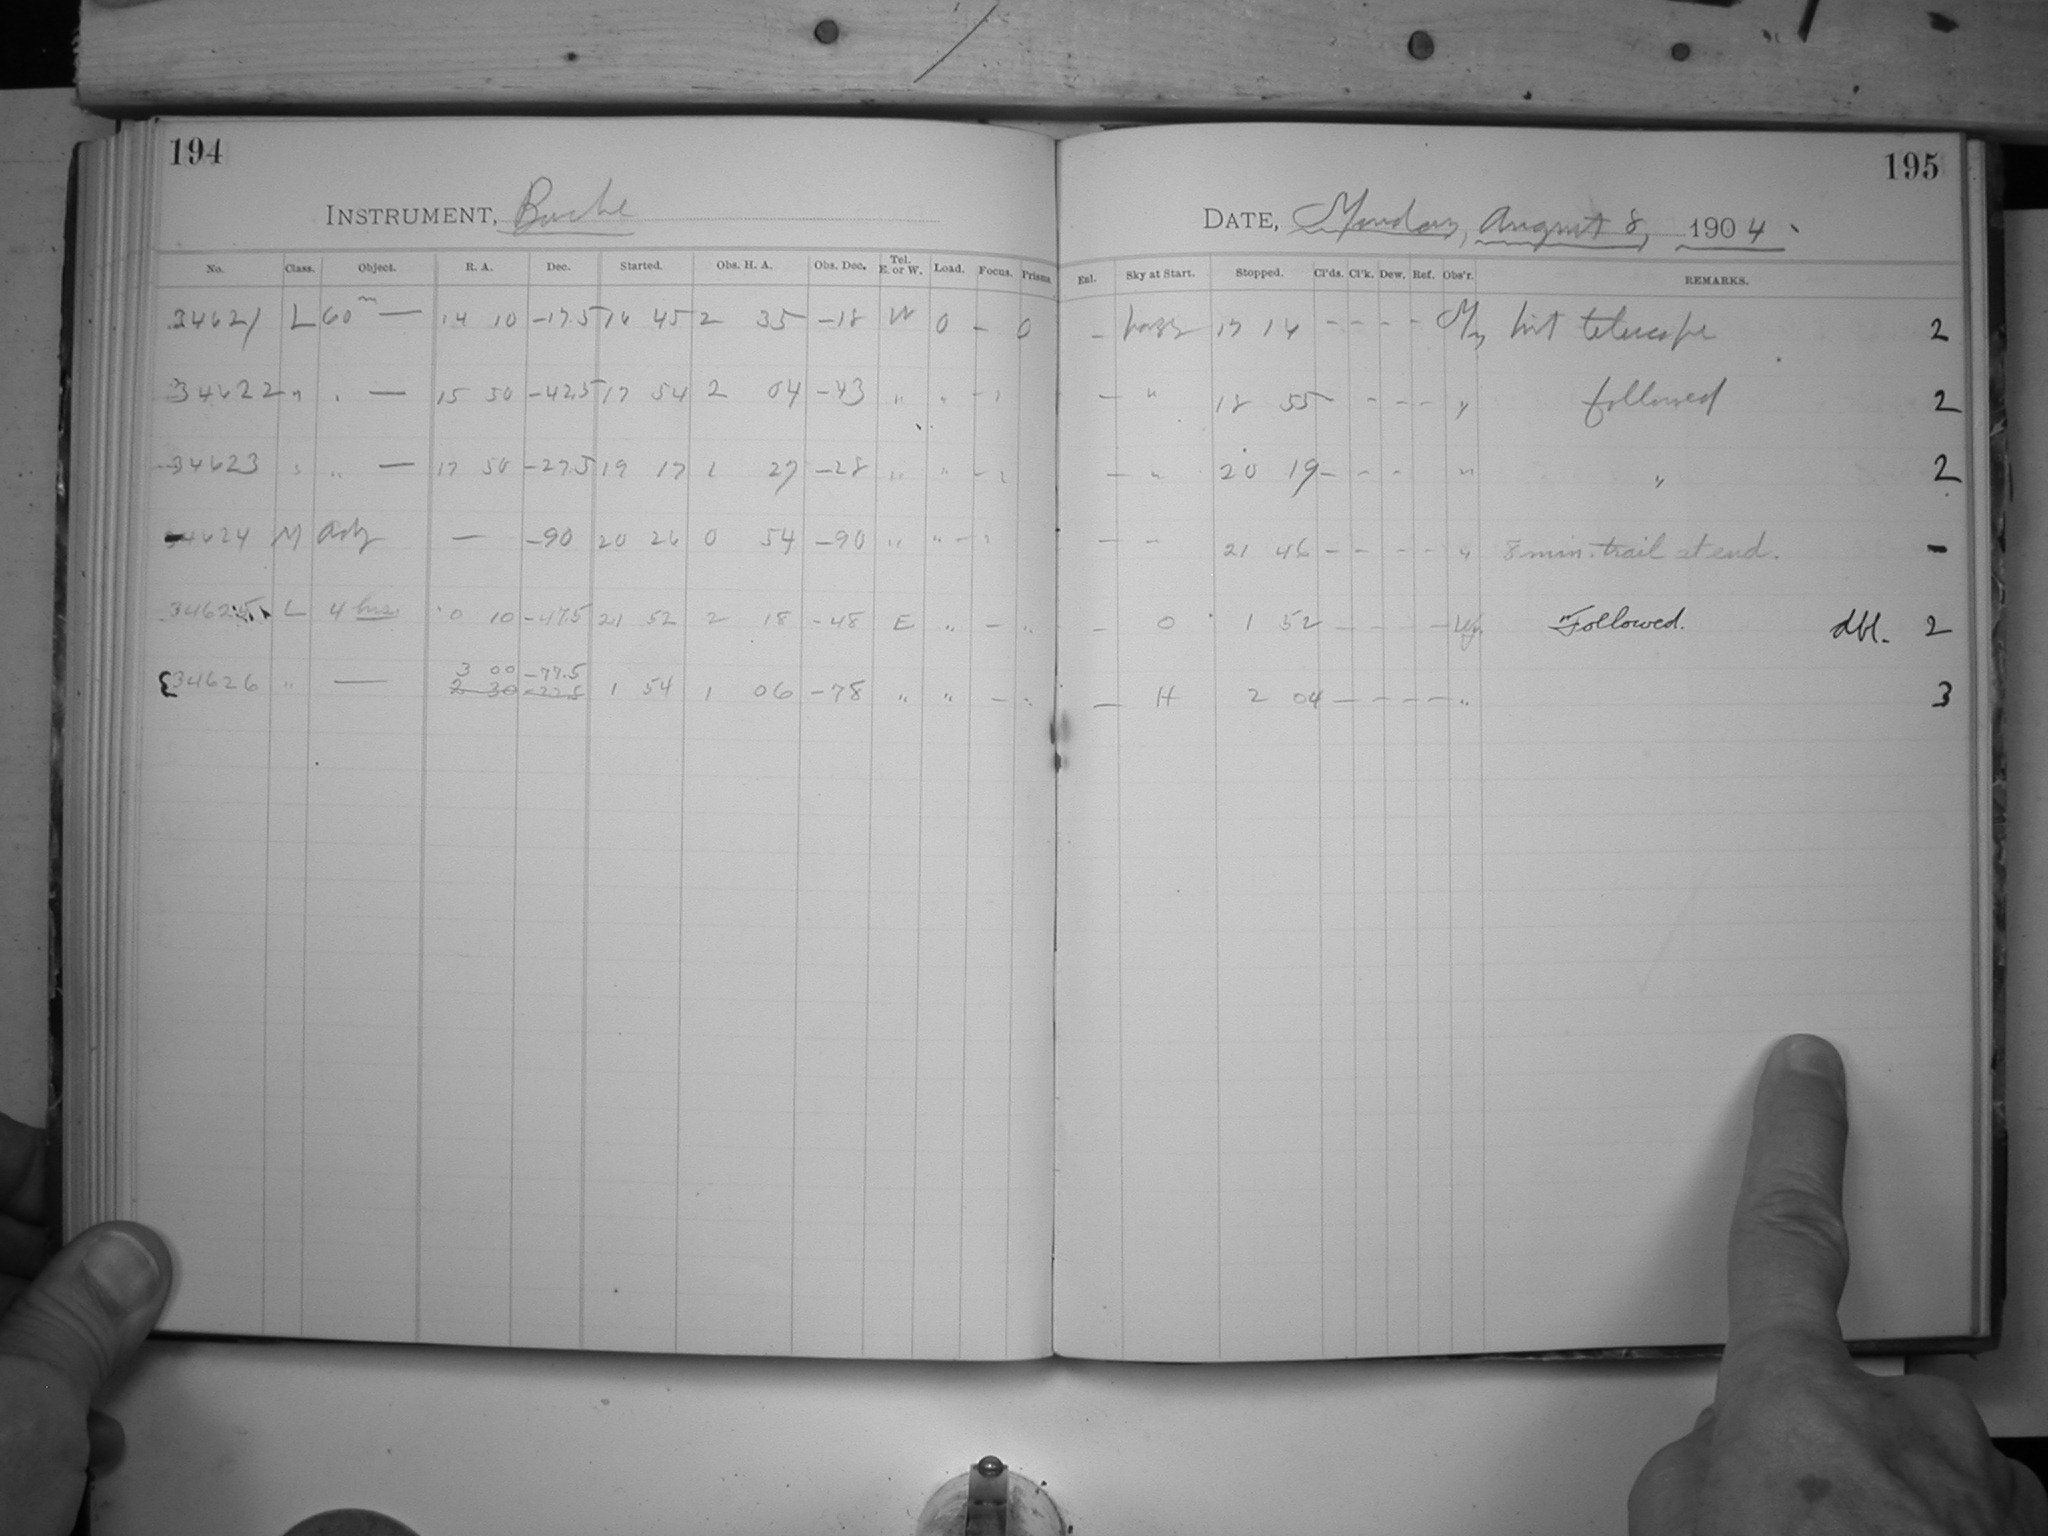 194
INSTRUMENT, Bache
No. Class. Object. R. A. Dec. Started. Obs. H. A. Obs. Dec. Tel. E. or W. Load. Focus. Prisms.
34621 L 60 m — 14 10 -17.5 16 45 2 35 -18 W 0 - 0
34622 " " — 15 50 -42.5 17 54 2 04 -43 " " - "
34623 " " — 17 50 -27.5 19 17 1 27 -28 " " - "
34624 M Adj — -90 20 26 0 54 -90 " " - "
34625 L 4 hrs. 0 10 -47.5 21 52 2 18 -48 E " - "
3 00 -77.5
34626 " — 2 30 -22.5 1 54 1 06 -78 " " - "
195
DATE, Monday, August 8, 1904.
Enl. Sky at Start. Stopped. Cl'ds. Cl'k. Dew. Ref. Obs'r. REMARKS.
- hazy 17 14 - - - - hit telescope 2
- " 18 55 - - - - " followed 2
- " 20 19 - - - " " 2
- " 21 46 - - - - " 8 min. trail at end. -
- 0 1 52 - - - - Followed. dbl. 2
- H 2 04 - - - - " 3